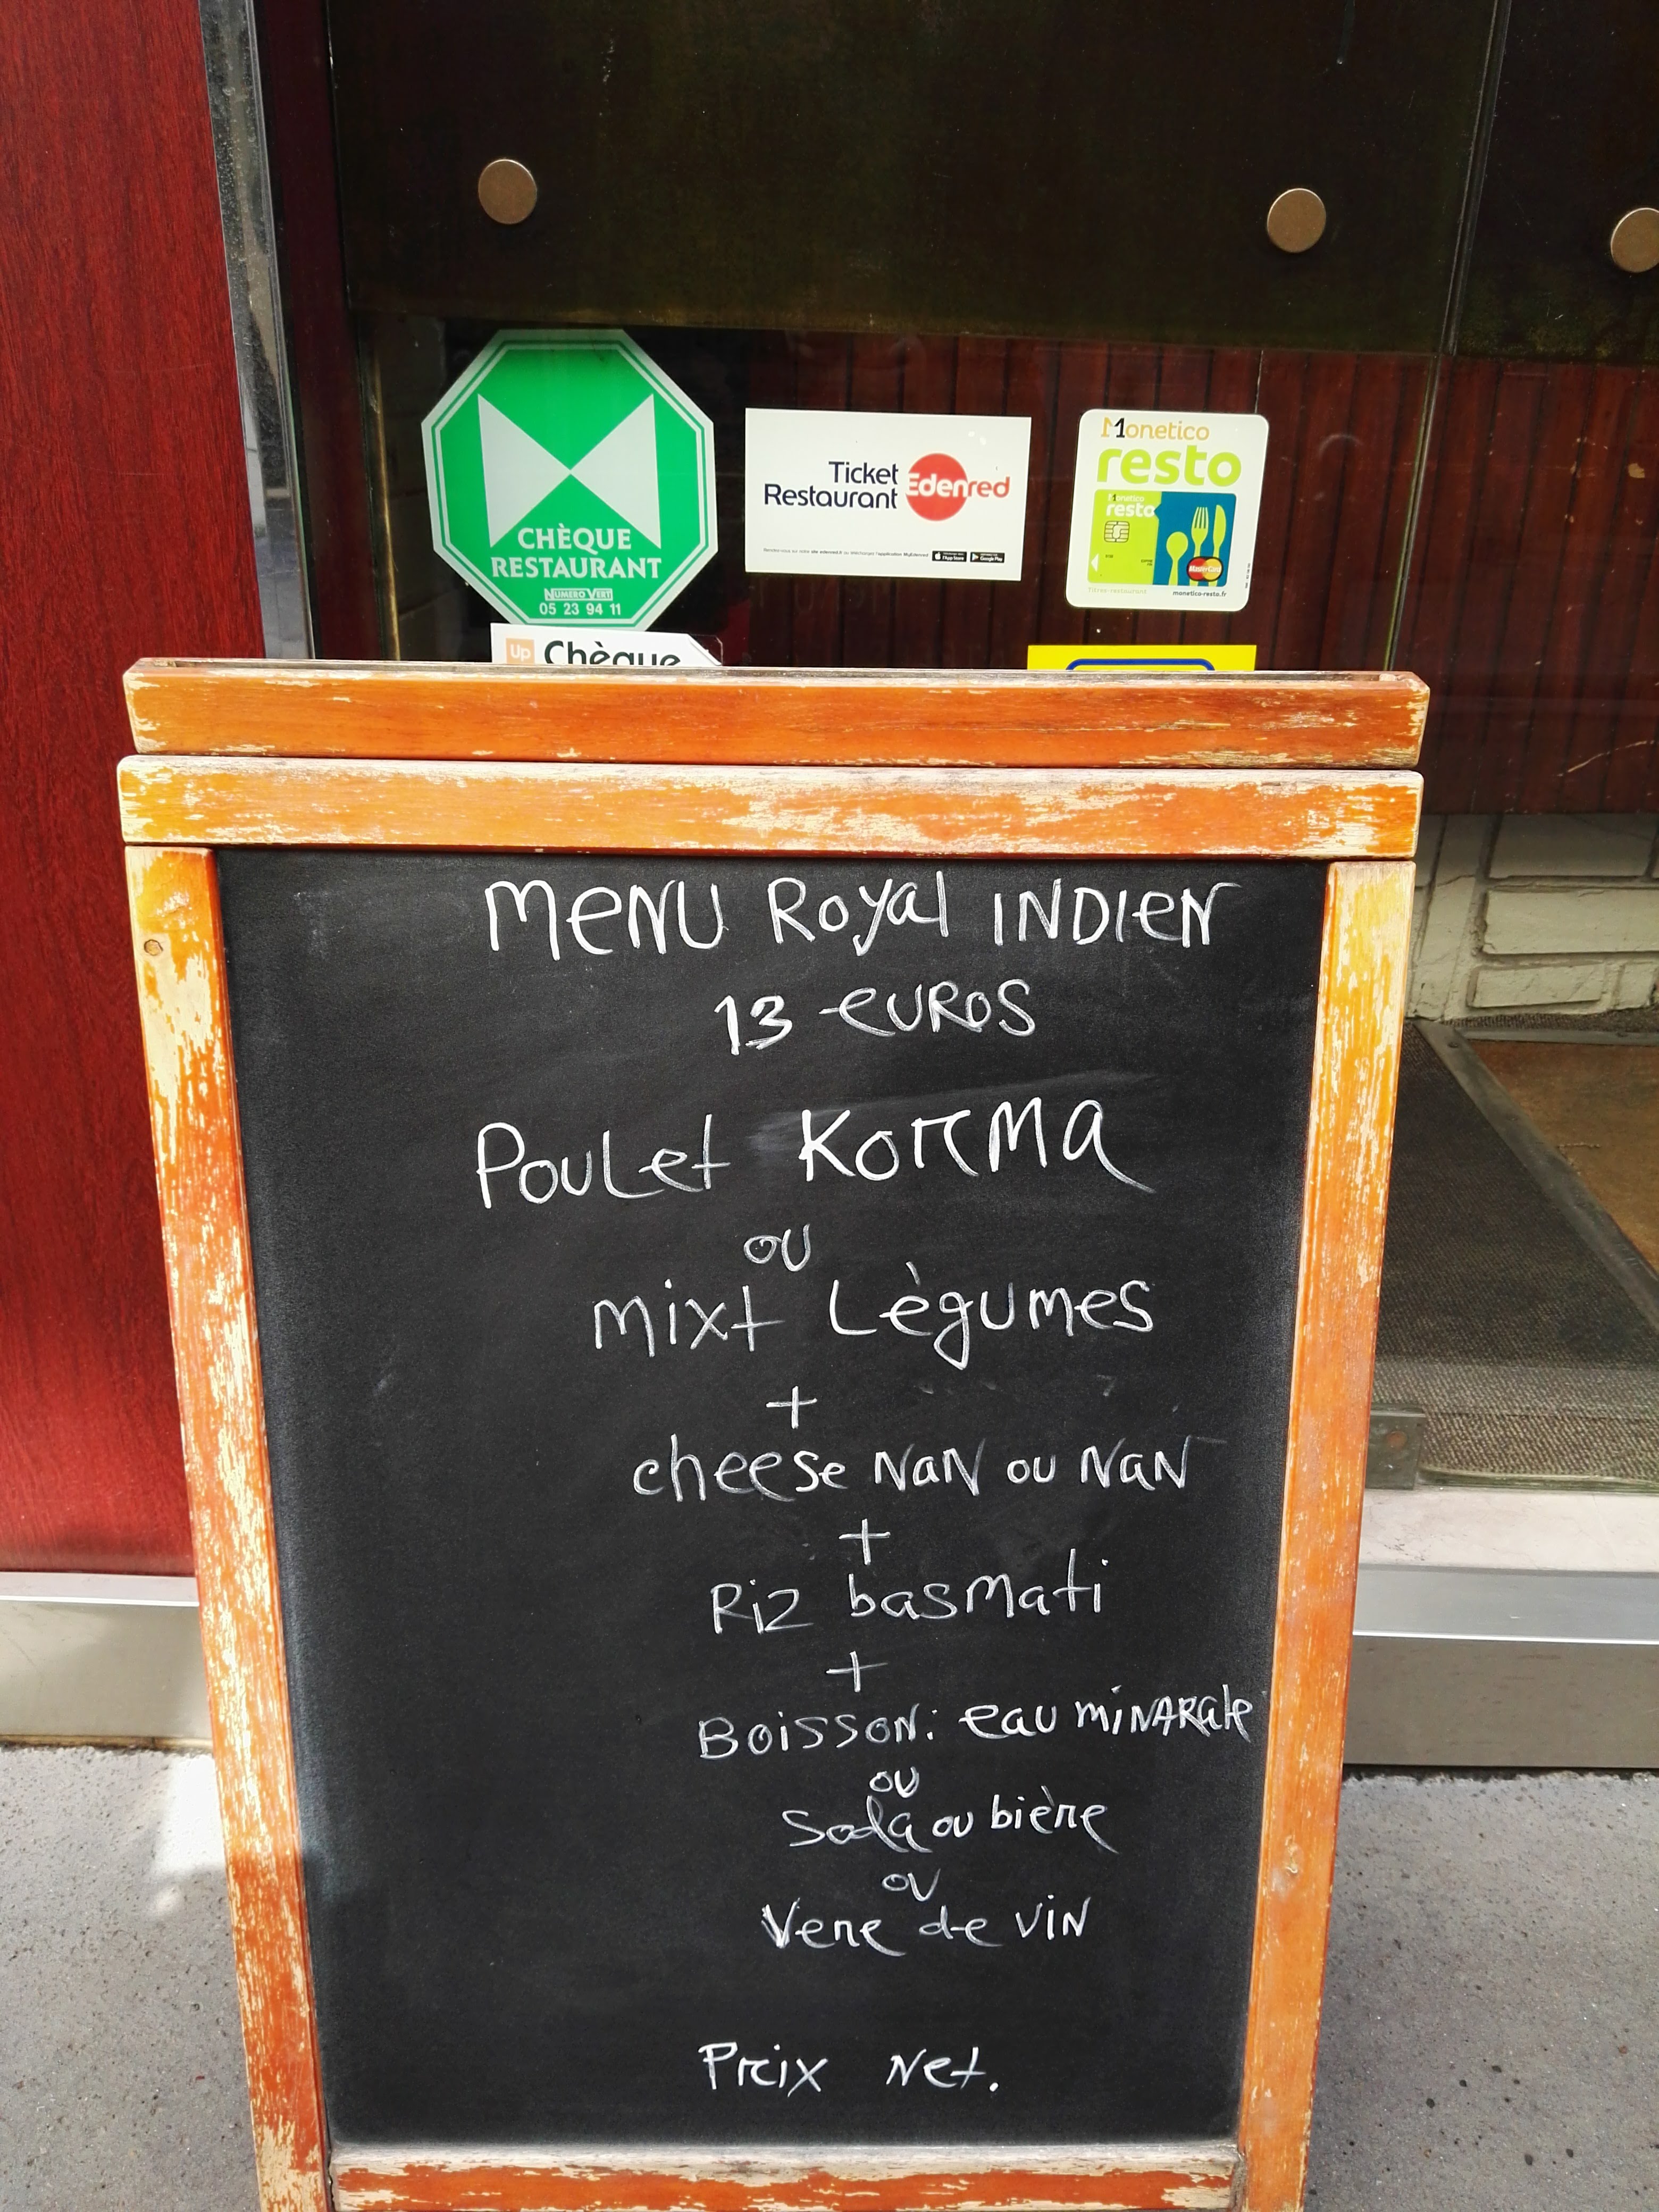 CHÈQUE
RESTAURANT
NUMERO VERT
05 23 94 11
Up Chèque
Ticket
Restaurant Edenred
Monetico
resto
Monetico
resto
MasterCard
Titres-restaurant monetico-resto.fr
MENU Royal INDIEN
13 EUROS
Poulet Korma
ou
Mixt Lègumes
+
cheese NaN ou NaN
+
Riz basmati
+
Boisson: eau minarale
ou
Soda ou bière
ou
Vere de vin
Prix Net.